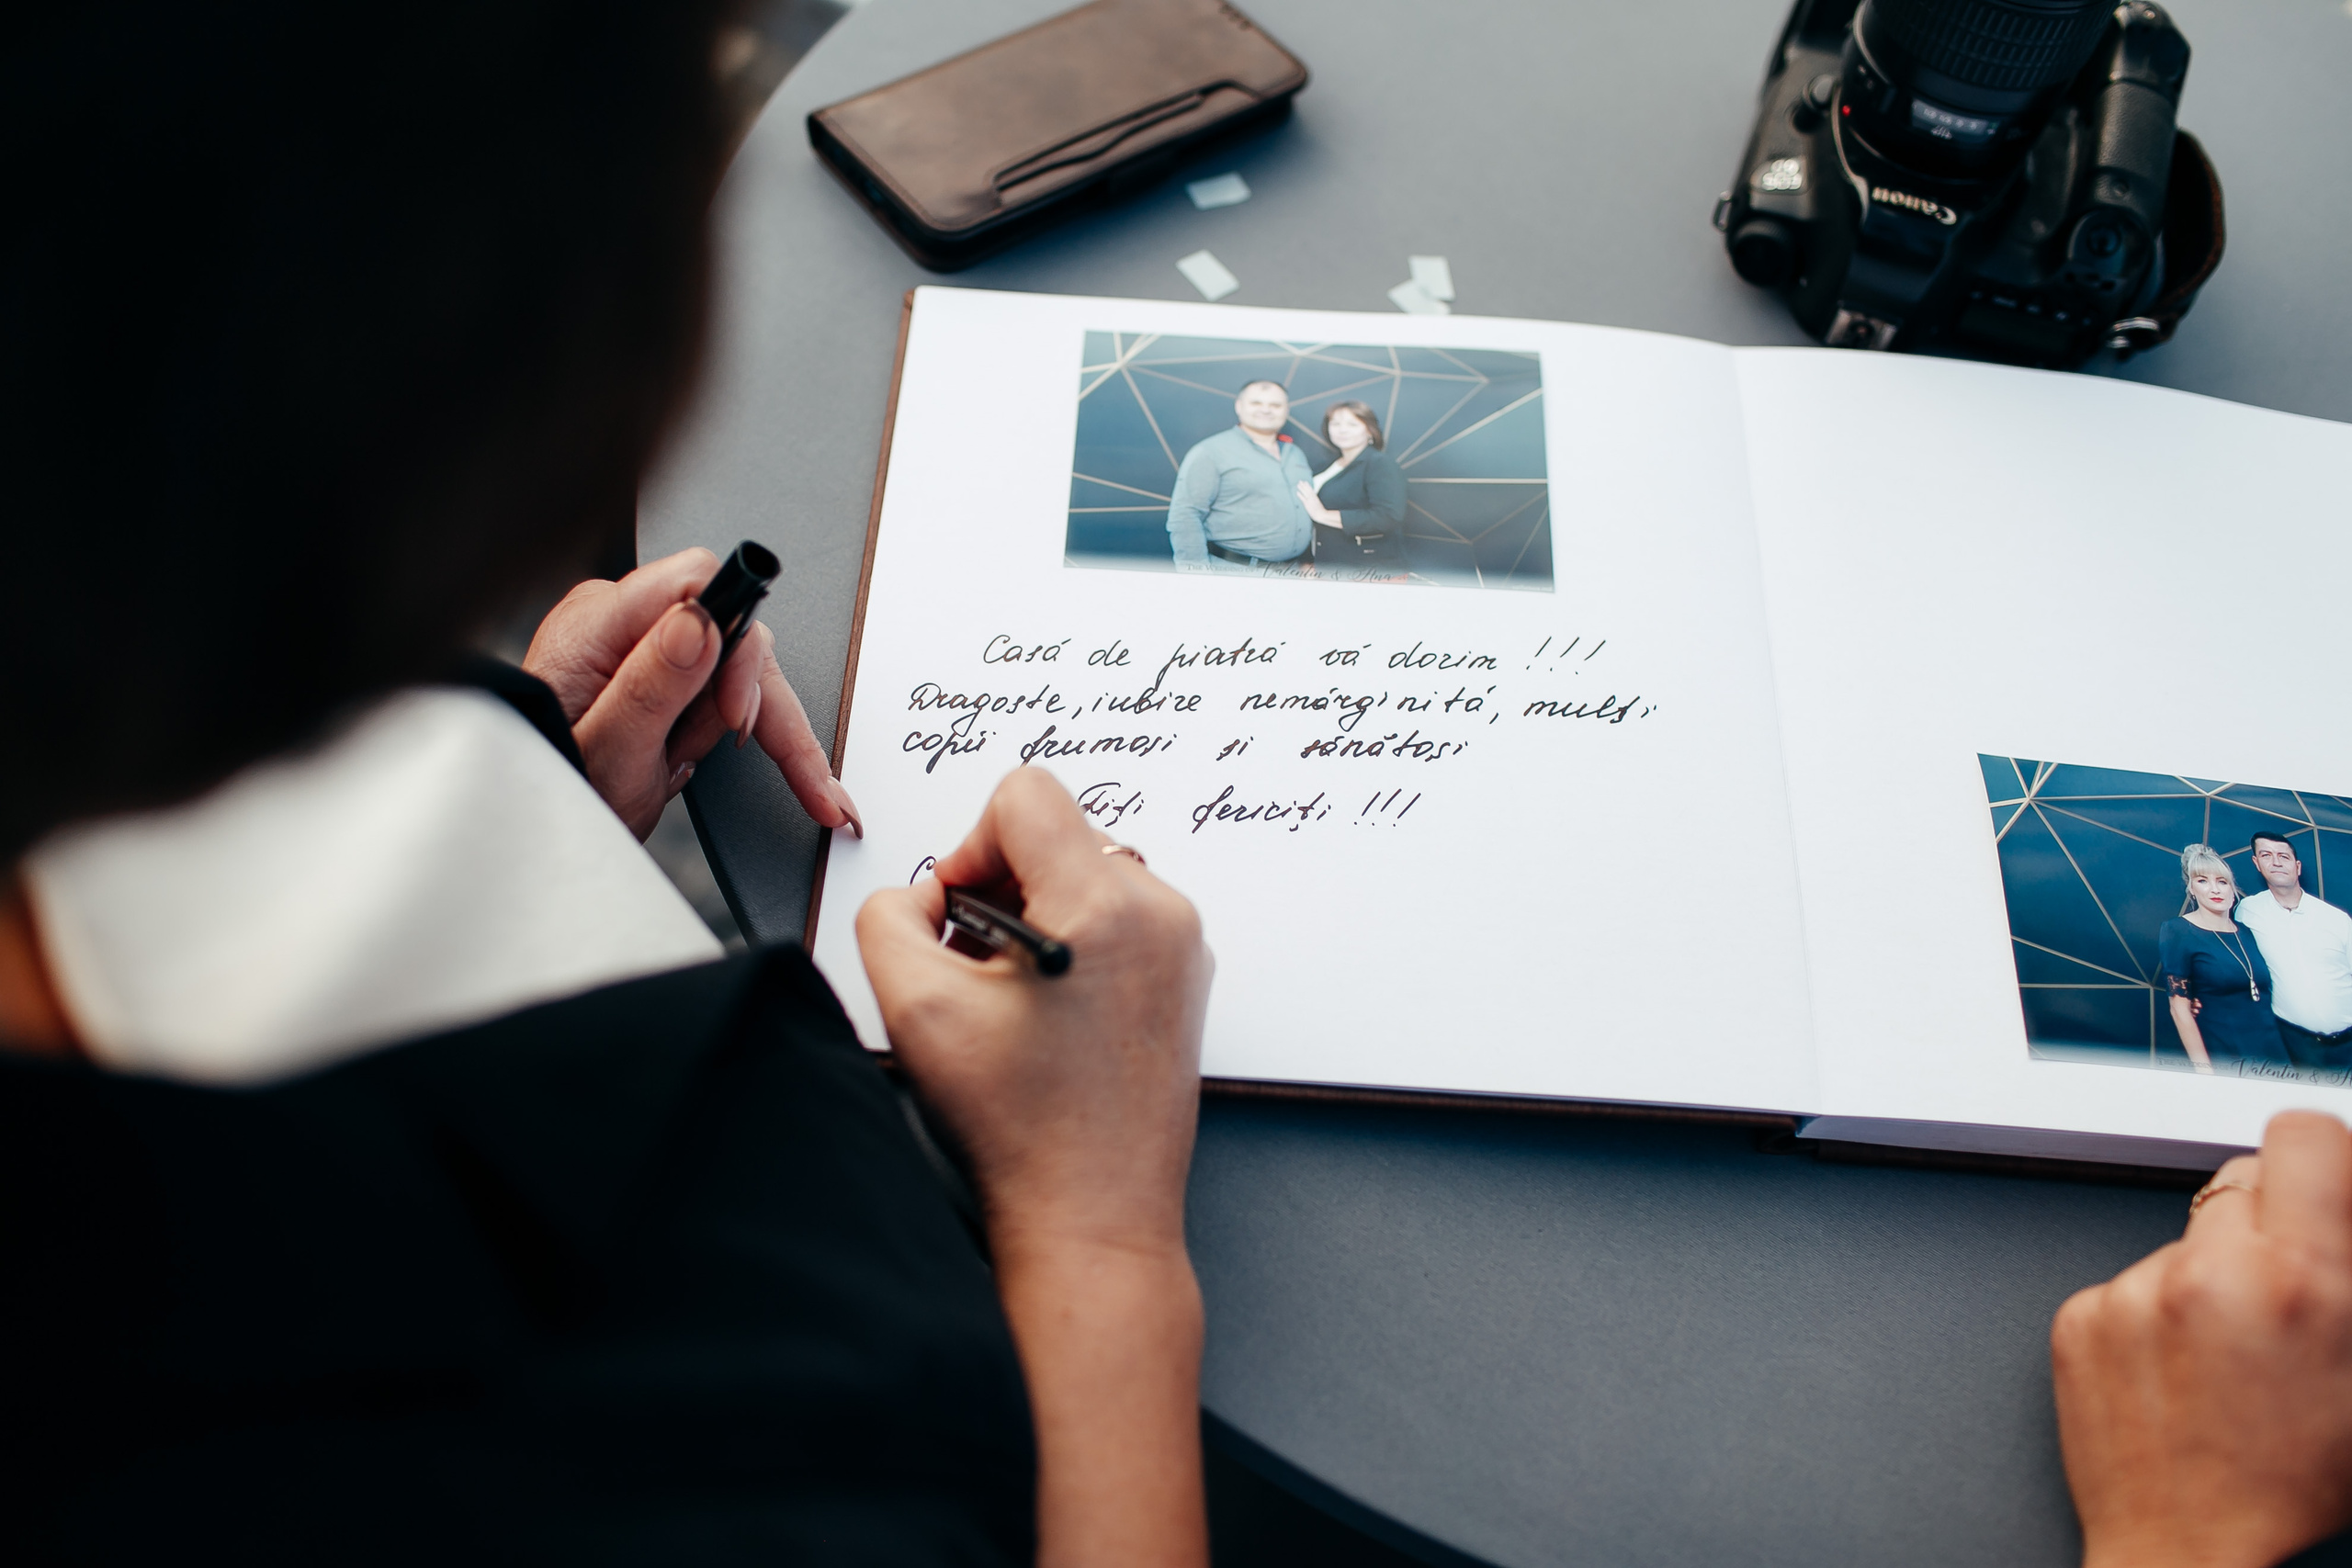 Canon
6D
Valentin & Ana
Casă de piatră vă dorim !!!
Dragoste, iubire nemărginită, mulți
copii frumoși și sănătoși
Fiți fericiți !!!
C
Valentin &